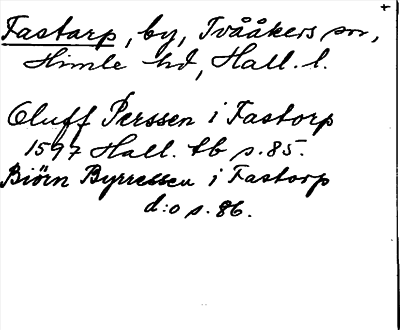 Fastarp, by, Tvååkers sn,
Himle hd, Hall. l.
Oluff Perssen i Fastorp
1597 Hall. tb s. 85.
Biörn Byrressen i Fastorp
d:o s. 86.